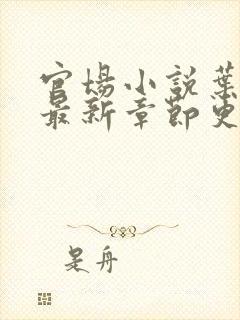 官场小説葉
最新章節史
是舟